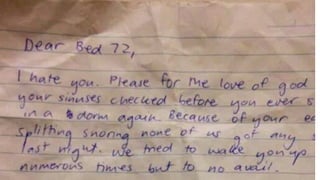 Dear Bed 72,
I hate you. Please for the love of god
your sinuses checked before you ever
in a dorm again. Because of your
splitting snoring none of us got any
last night. We tried to wake you up
numerous times but to no avail.